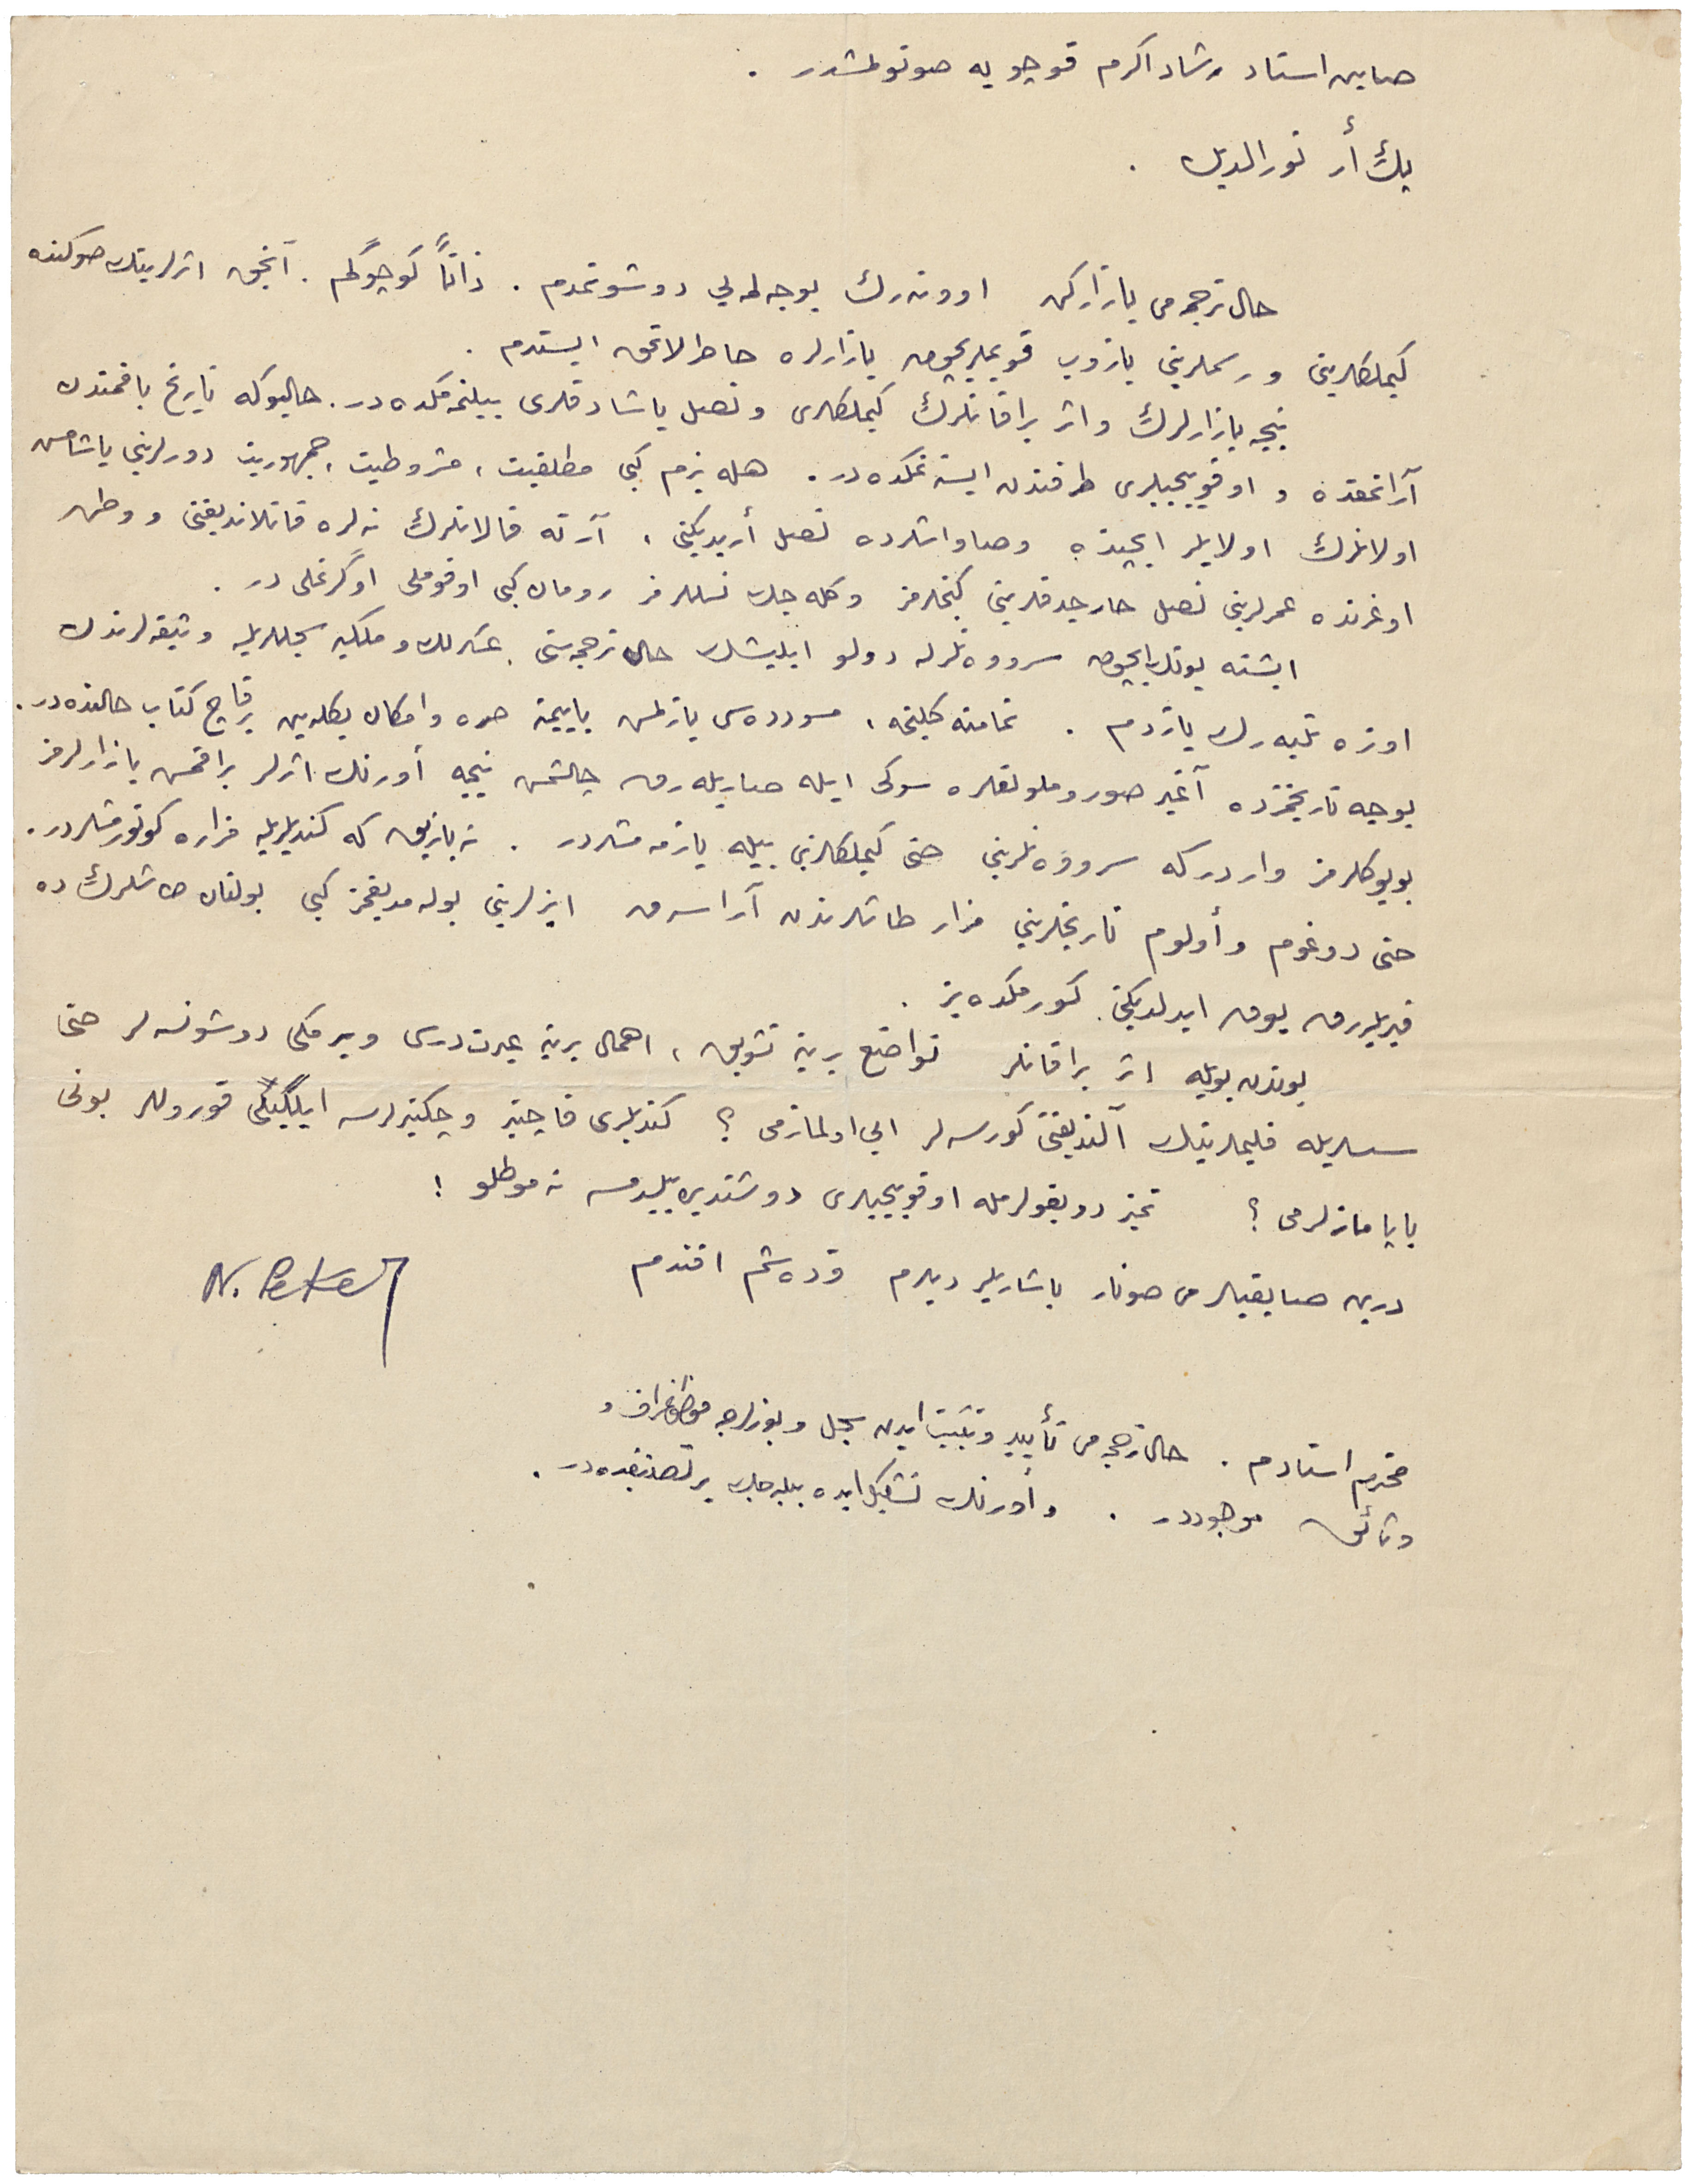 صایین استاد رشاد اکرم قوچویه صونولمشدر .
پك أر نورالدیندن .
حال ترجمه‌می یازارکن اووونه‌رك یوجه‌لمه‌یی دوشونمدم . ذاتاً کوچوگم . آنجق اثرلرینك صوکنده
کیملکلرینی و رسملرینی یازوب قویملری ایچون یازارلره خاطرلاتمق ایستدم .
نیجه یازارلرك و اثر براقانلرك کیملکلری و نصل یاشادقلری بیلنمه‌مکده‌در . حالبوکه تاریخ باقمندن
آرانمقده و اوقویوجیلری طرفندن ایستنمکده‌در . هله بزم کبی مطلقیت ، مشروطیت ، جمهوریت دورلرینی یاشامش
اولانلرك اولایلر ایچنده وصاواشلرده نصل أریدیکنی ، آرته قالانلرك نه‌لره قاتلاندیغنی و وطن
اوغرنده عمرلرینی نصل خارجدقلرینی کنجلرمز و کله‌جك نسللرمز رومان کبی اوقوملی اوگرنملی در .
ایشته بونك ایچون سرووه‌نلرله دولو ایلیشك حال ترجمه‌سنی عسکرلك و ملکیه سجللریله وثیقه‌لرندن
اوزه‌تلیه‌رك یازدم . تمامنه کلنجه ، مسوده‌سی یازلمش یاییمنه صره و امکان بکله‌ین برقاچ کتاب حالنده‌در .
یوجه تاریخمزده آغیر صوروملولقلره سوگی ایله صاریله‌رق چالشمش نیجه أورنك اثرلر براقمش یازارلرمز
بویوکلرمز واردرکه سرووه‌نلرینی حتی کیملکلرینی بیله یازمه‌مشلردر . نه یازیق که کندیلریله مزاره کوتورمشلردر .
حتی دوغوم و أولوم تاریخلرینی مزار طاشلرندن آراسه‌ق ایزلرینی بوله‌مدیغمز کبی بولنان طاشلرك ده
قیریلارق یوق ایدلدیکنی کورمکده‌یز .
بوندن بویله اثر براقانلر تواضع یرینه تشویق ، اهمال یرینه عبرت درسی ویرمکی دوشونسه‌لر حتی
سسلریله فیلملرینك آلندیغنی کورسه‌لر ایی اولمازمی ؟ کندیلری قاچینیر و چکینیرلرسه ایلگیلی قوروللر بونی
یاپامازلرمی ؟ تمیز دویغولرمله اوقویوجیلری دوشندیره‌بیلیرسه‌م نه موطلو !
درین صایغیلرمی صونار باشاریلر دیلرم قرده‌شم افندم
N. Peker
محترم استادم . حال ترجمه‌می تأیید و تثبیت ایدن سجل و یوزلرجه فوطوغراف و
وثائق موجوددر . و أورنك تشکیل ایده‌بیله‌جك بر تصنیفده‌در .